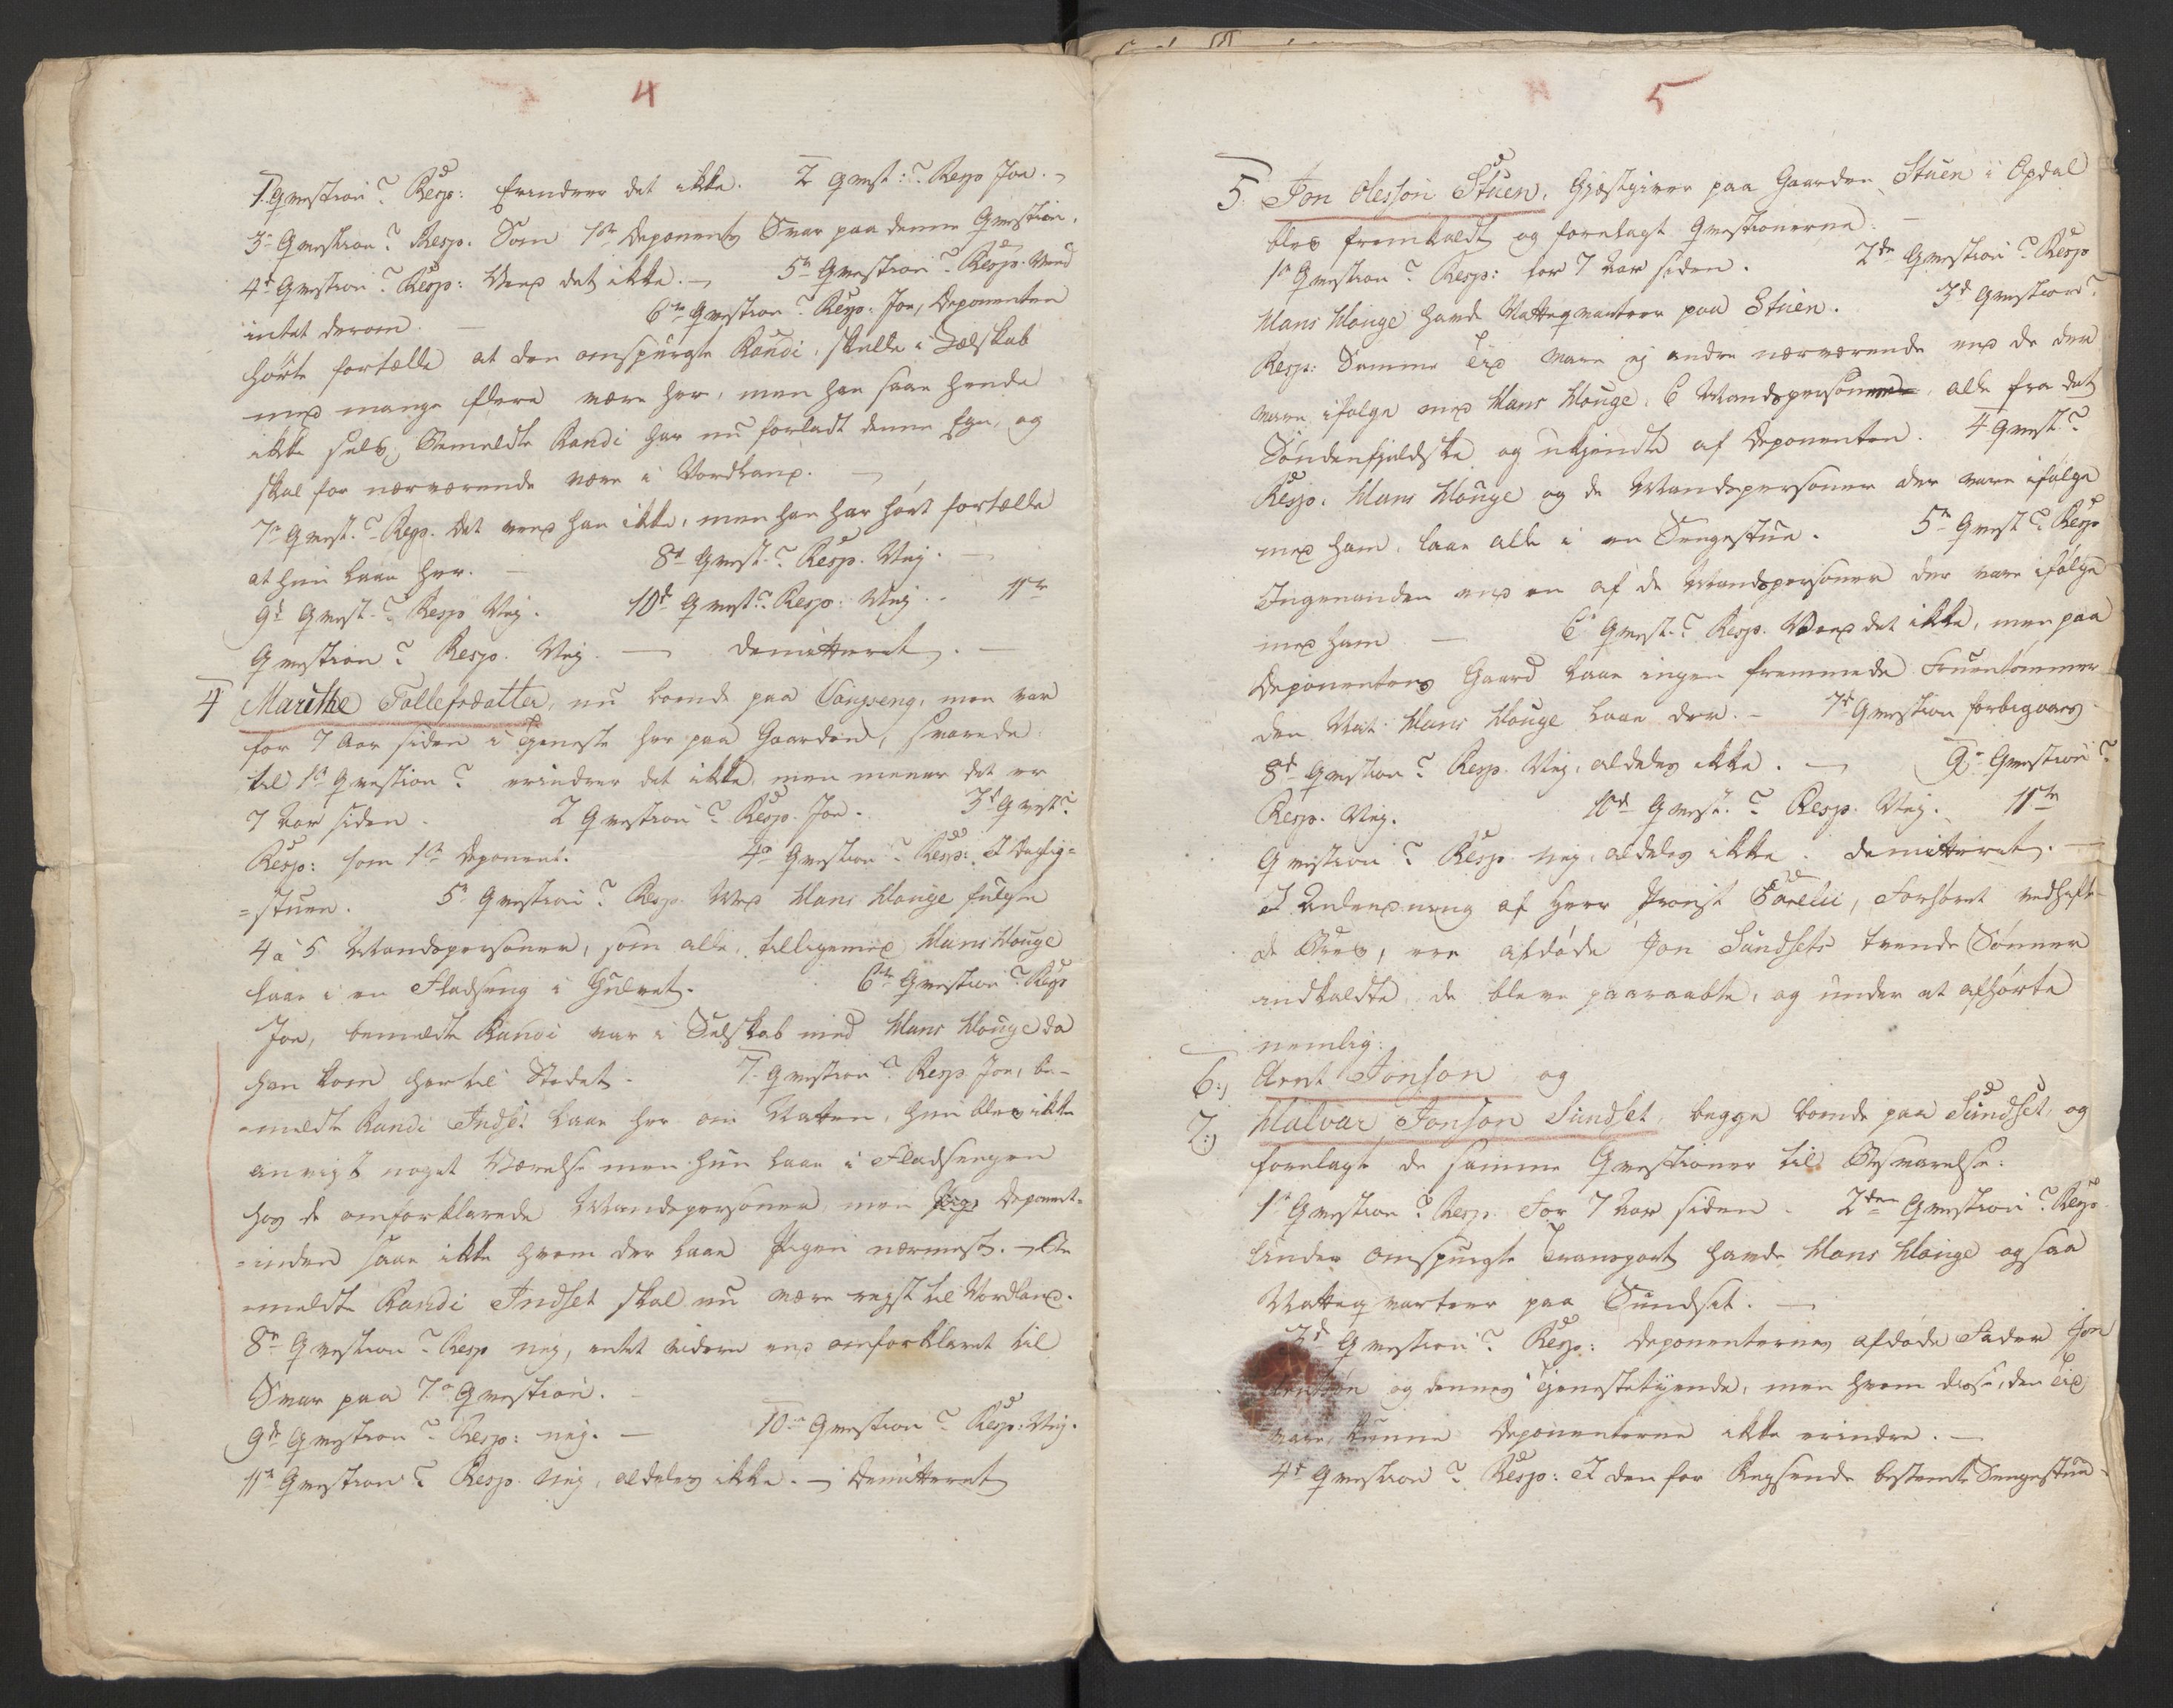 4
1. Qvestion? Resp: Erindrer det ikke. 2 Qvest:? Resp Joe. –
3die Qvestion? Resp. Som 1ste Deponents Svar paa denne Qvestion.
4de Qvestion? Resp: Veed det ikke. – 5te Qvestion? Resp. Veed
intet derom. – 6te Qvestion? Resp: Joe, Deponenten
hørte fortælle at den omspurgte Randi, skulle i Selskab
med mange flere være her, men han saae hende
ikke selv; Bemeldte Randi har nu forladt denne Egn, og
skal for nærværende være i Nordland. –
7de Qvest.? Resp. Det veed han ikke, men han har hørt fortælle
at hun laae her. – 8de Qvest.? Resp. Nej. –
9de Qvest.? Resp Nej. 10de Qvest? Resp: Nej. – 11te
Qvestion? Resp. Nej. – Demitteret. –
4 Marithe Tollefsdatter, nu boende paa Vangseng, men var
for 7 Aar siden i Tjeneste her paa Gaarden, svarede
til 1ste Qvestion? erindrer det ikke, men mener det er
7 Aar siden. 2 Qvestion? Resp. Joe. 3de Qvest?
Resp: som 1ste Deponent. 4de Qvestion? Resp: I Daglig=
=stuen. 5te Qvestion? Resp. Med Hans Hauge fulgte
4 à 5 Mandspersoner, som alle, tilligemed Hans Hauge
laae i en Fladseng i Gulvet. 6te Qvestion? Resp
Joe, bemeldte Randi var i Selskab med Hans Hauge da
han kom her til Stedet. 7. Qvestion? Resp. Joe, be-
-meldte Randi Indset laae her om Natten, hun blev ikke
anviist noget Værelse men hun laae i Fladsengen
hos de omforklarede Mandspersoner, men Deponent=
=inden saae ikke hvem der laae Pigen nærmest. – Be
-meldte Randi Indset skal nu være reyst til Nordland.
8de Qvestion? Resp nej, intet videre end omforklaret til
Svar paa 7de Qvestion.
9de Qvestion? Resp: nej. – 10de Qvestion? Resp: Nej.
11te Qvestion? Resp. Nej, aldeles ikke. – Demitteret
5
5. Jon Olessøn Stuen, Gjæstgiver paa Gaarden Stuen i Opdal
blev fremkaldt og forelagt Qvestionerne: –
1ste Qvestion? Resp: for 7 Aar siden. 2den Qvestion? Resp
Hans Hauge havde Natteqvarteer paa Stuen. 3de Qvestion?
Resp: Samme Tid vare ej andre nærværende end de der
vare ifølge med Hans Hauge, 6 Mandspersoner, alle fra det
Søndenfjeldske og ukjendte af Deponenten. 4 Qvest?
Resp. Hans Hauge og de Mandspersoner der vare ifølge
med ham, laae alle i en Sengestue. 5te Qvest? Resp
Ingen anden end en af de Mandspersoner der vare ifølge
med ham – 6te Qvest.? Resp. Veed det ikke, men paa
Deponentens Gaard laae ingen fremmede Fruentømmer
den Nat Hans Hauge laae der. – 7de Qvestion forbigaaes.
8de Qvestion? Resp. Nej, aldeles ikke. – 9de Qvestion?
Resp. Nej. 10de Qvest.? Resp. Nej. 11te
Qvestion? Resp nej, aldeles ikke. Demitteret. –
I Anledning af Herr Provst Parelii, Forhøret vedheft-
de Brev, ere afdøde Jon Sundsets tvende Sønner
indkaldte, de bleve paaraabte, og under et afhørte
nemlig:
6:, Arent Jonsøn og
7:, Halvor Jonsøn Sundset, begge boende paa Sundset, og
forelagt de samme Qvestioner til Besvarelse:
1ste Qvestion? Resp. For 7 Aar siden – 2den Qvestion? Resp.
Under omspurgte Transport havde Hans Hauge ogsaa
Natteqvarteer paa Sundset. –
3de Qvestion? Resp: Deponenternes afdøde Fader Jon
Arentsøn og dennes Tjenestetyende, men hvem disse, den Tid
vare, kunne Deponenterne ikke erindre. –
4de Qvestion? Resp: I den for Reysende bestemte Sengestue